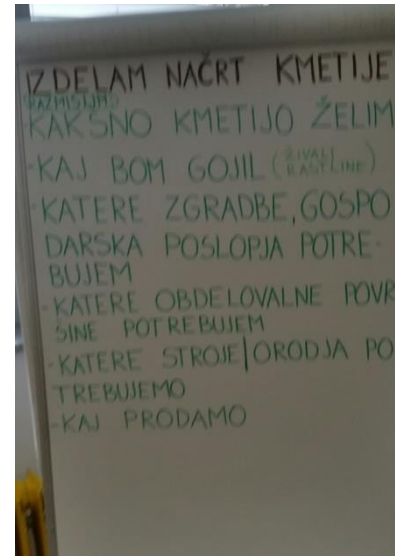 IZDELAM NAČRT KMETIJE
RAZMISLIMO
KAKŠNO KMETIJO ŽELIM
-KAJ BOM GOJIL (ŽIVALI
RASTLINE)
-KATERE ZGRADBE, GOSPO
DARSKA POSLOPJA POTRE-
BUJEM
-KATERE OBDELOVALNE POVR
ŠINE POTREBUJEM
-KATERE STROJE/ORODJA PO
TREBUJEMO
-KAJ PRODAMO